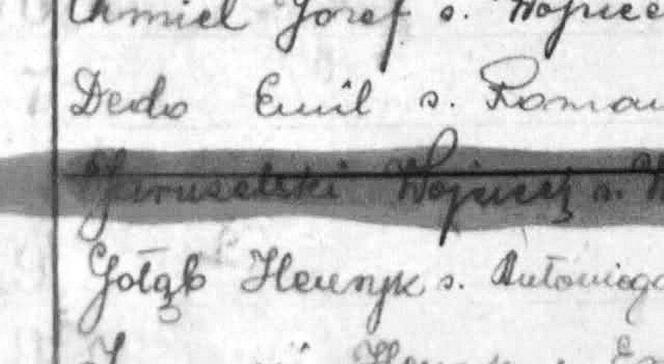 Chmiel Józef s. Wojciec
Dedo Emil s. Roman
Jaruzelski Wojciech s. W
Gołąb Henryk s. Antoniego